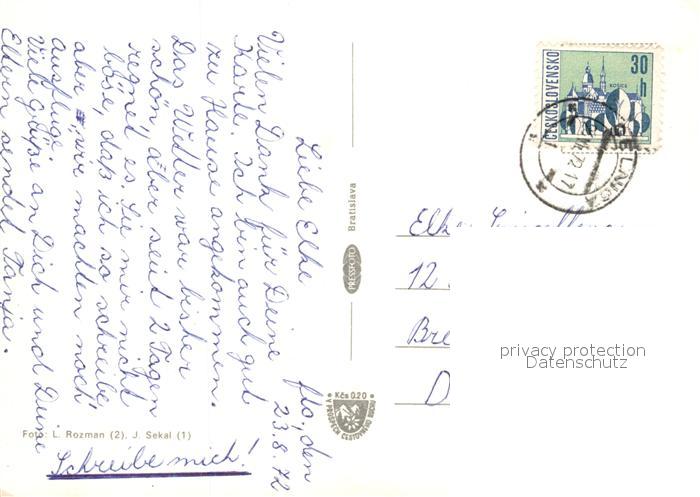 Gla, den
23.8.72
Liebe Elke
Vielen Dank für Deine
Karte. Ich bin auch gut
zu Hause angekommen.
Das Wetter war bisher
schön aber seit 2 Tagen
regnet es. Sei mir nicht
böse, daß ich so schreibe
aber wir machten noch
ausflüge.
Viele grüße an Dich und Deine
Eltern sendet Tanja.
Schreibe mich!
Foto: L. Rozman (2), J. Sekal (1)
Bratislava
PRESSFOTO
Kčs 0,20
V PROSPĚCH CESTOVNÍHO RUCHU
ČESKOSLOVENSKO
30 h
KOŠICE
GELNICA
72-17
Elke
12
Bre
D
privacy protection
Datenschutz